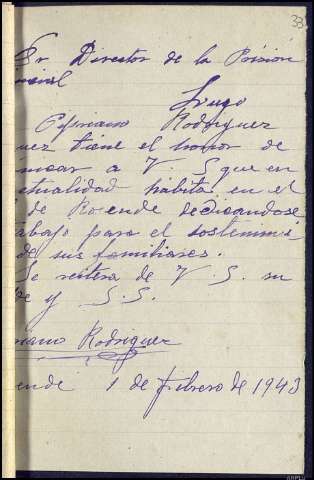 33
Sr Director de la Prision
incial
Lugo
Cipriano Rodriguez
uez tiene el honor de
nicar a V. S que en
ctualidad habita en el
de Rosende dedicandose
abajo para el sostenimi
de sus familiares.
Se reitera de V. S. su
y S.S.
riano Rodriguez
ende 1 de febrero de 1943